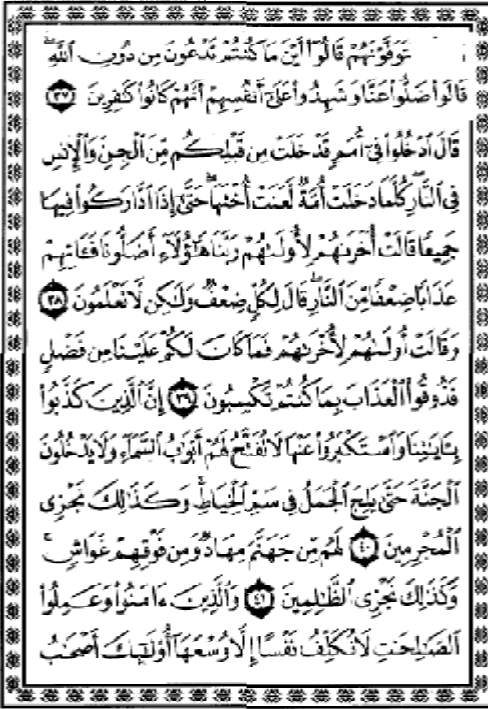 يَتَوَفَّوْنَهُمْ قَالُوٓا۟ أَيْنَ مَا كُنتُمْ تَدْعُونَ مِن دُونِ ٱللَّهِ ۖ
قَالُوا۟ ضَلُّوا۟ عَنَّا وَشَهِدُوا۟ عَلَىٰٓ أَنفُسِهِمْ أَنَّهُمْ كَانُوا۟ كَٰفِرِينَ ٣٧
قَالَ ٱدْخُلُوا۟ فِىٓ أُمَمٍ قَدْ خَلَتْ مِن قَبْلِكُم مِّنَ ٱلْجِنِّ وَٱلْإِنسِ
فِى ٱلنَّارِ ۖ كُلَّمَا دَخَلَتْ أُمَّةٌ لَّعَنَتْ أُخْتَهَا ۖ حَتَّىٰٓ إِذَا ٱدَّارَكُوا۟ فِيهَا
جَمِيعًا قَالَتْ أُخْرَىٰهُمْ لِأُولَىٰهُمْ رَبَّنَا هَٰٓؤُلَآءِ أَضَلُّونَا فَـَٔاتِهِمْ
عَذَابًا ضِعْفًا مِّنَ ٱلنَّارِ ۖ قَالَ لِكُلٍّ ضِعْفٌ وَلَٰكِن لَّا تَعْلَمُونَ ٣٨
وَقَالَتْ أُولَىٰهُمْ لِأُخْرَىٰهُمْ فَمَا كَانَ لَكُمْ عَلَيْنَا مِن فَضْلٍ
فَذُوقُوا۟ ٱلْعَذَابَ بِمَا كُنتُمْ تَكْسِبُونَ ٣٩ إِنَّ ٱلَّذِينَ كَذَّبُوا۟
بِـَٔايَٰتِنَا وَٱسْتَكْبَرُوا۟ عَنْهَا لَا تُفَتَّحُ لَهُمْ أَبْوَٰبُ ٱلسَّمَآءِ وَلَا يَدْخُلُونَ
ٱلْجَنَّةَ حَتَّىٰ يَلِجَ ٱلْجَمَلُ فِى سَمِّ ٱلْخِيَاطِ ۚ وَكَذَٰلِكَ نَجْزِى
ٱلْمُجْرِمِينَ ٤٠ لَهُم مِّن جَهَنَّمَ مِهَادٌ وَمِن فَوْقِهِمْ غَوَاشٍ ۚ
وَكَذَٰلِكَ نَجْزِى ٱلظَّٰلِمِينَ ٤١ وَٱلَّذِينَ ءَامَنُوا۟ وَعَمِلُوا۟
ٱلصَّٰلِحَٰتِ لَا نُكَلِّفُ نَفْسًا إِلَّا وُسْعَهَآ أُو۟لَٰٓئِكَ أَصْحَٰبُ